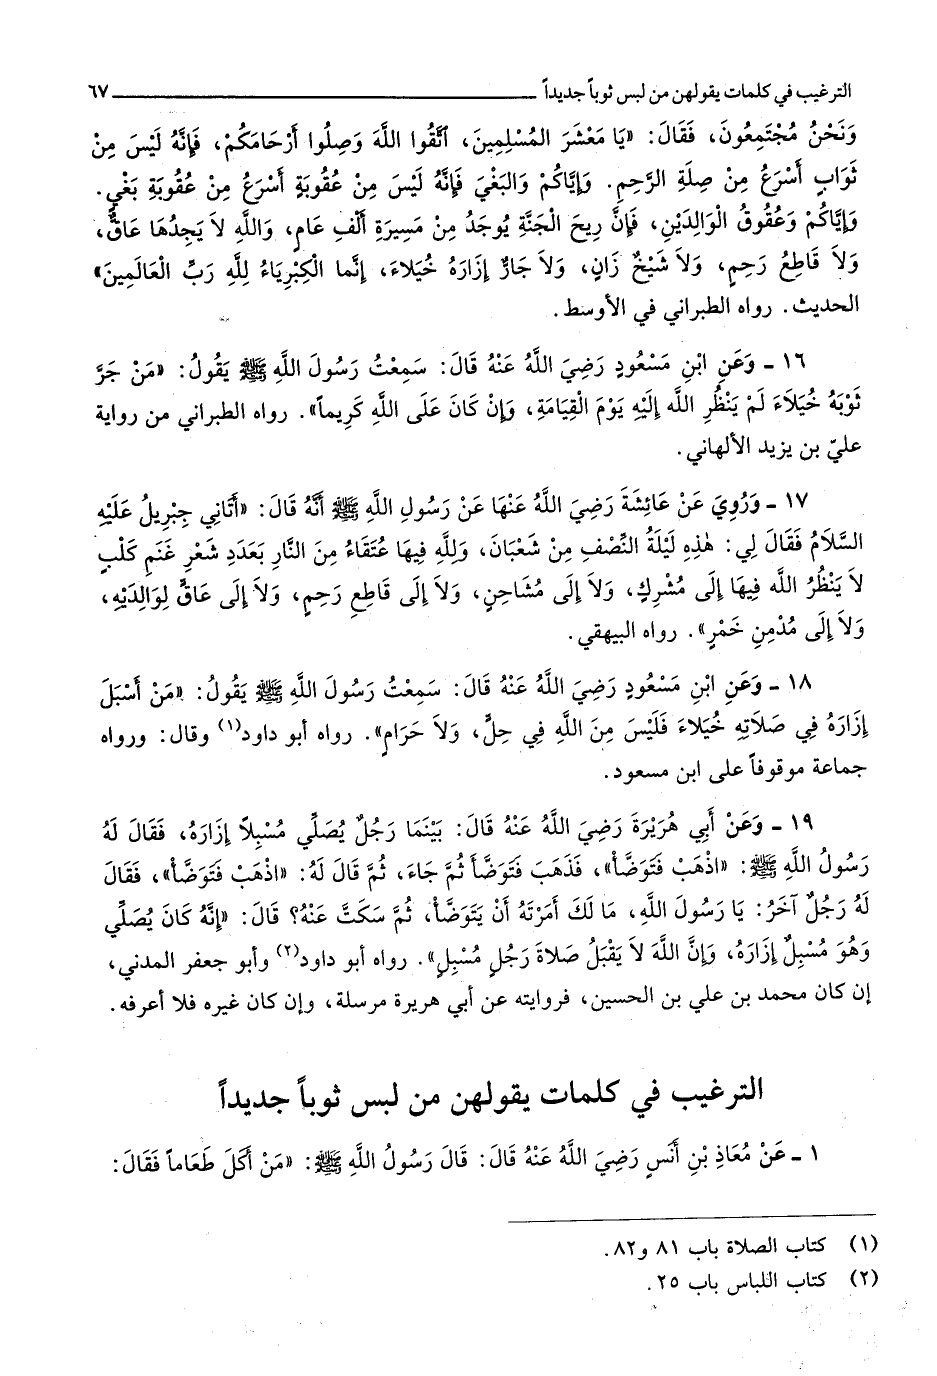 الترغيب في كلمات يقولهن من لبس ثوباً جديداً ٦٧
وَنَحْنُ مُجْتَمِعُونَ، فَقَالَ: «يَا مَعْشَرَ المُسْلِمِينَ، اتَّقُوا اللَّهَ وَصِلُوا أَرْحَامَكُمْ، فَإِنَّهُ لَيْسَ مِنْ
ثَوَابٍ أَسْرَعُ مِنْ صِلَةِ الرَّحِمِ. وَإِيَّاكُمْ وَالبَغْيَ فَإِنَّهُ لَيْسَ مِنْ عُقُوبَةٍ أَسْرَعُ مِنْ عُقُوبَةِ بَغْيٍ.
وَإِيَّاكُمْ وَعُقُوقُ الْوَالِدَيْنِ، فَإِنَّ رِيحَ الْجَنَّةِ يُوجَدُ مِنْ مَسِيرَةِ أَلْفِ عَامٍ، وَاللَّهِ لاَ يَجِدُهَا عَاقٌّ،
وَلاَ قَاطِعُ رَحِمٍ، وَلاَ شَيْخٌ زَانٍ، وَلاَ جَارٌّ إِزَارَهُ خُيَلاَءَ، إِنَّما الْكِبْرِيَاءُ لِلَّهِ رَبِّ الْعَالَمِينَ»
الحديث. رواه الطبراني في الأوسط.
١٦ ـ وَعَنِ ابْنِ مَسْعُودٍ رَضِيَ اللَّهُ عَنْهُ قَالَ: سَمِعْتُ رَسُولَ اللَّهِ ﷺ يَقُولُ: «مَنْ جَرَّ
ثَوْبَهُ خُيَلَاءَ لَمْ يَنْظُرِ اللَّه إِلَيْهِ يَوْمَ الْقِيَامَةِ، وَإِنْ كَانَ عَلَى اللَّهِ كَرِيماً». رواه الطبراني من رواية
عليّ بن يزيد الألهاني.
١٧ ـ وَرُوِيَ عَنْ عَائِشَةَ رَضِيَ اللَّهُ عَنْهَا عَنْ رَسُولِ اللَّهِ ﷺ أَنَّهُ قَالَ: «أَتَانِي جِبْرِيلُ عَلَيْهِ
السَّلَامُ فَقَالَ لِي: هٰذِهِ لَيْلَةُ النِّصْفِ مِنْ شَعْبَانَ، وَلِلَّهِ فِيهَا عُتَقَاءُ مِنَ النَّارِ بَعَدَدِ شَعْرِ غَنَمِ كَلْبٍ
لاَ يَنْظُرُ اللَّه فِيهَا إِلَى مُشْرِكٍ، وَلاَ إِلَى مُشَاحِنٍ، وَلاَ إِلَى قَاطِعِ رَحِمٍ، وَلاَ إِلَى عَاقٍّ لِوَالِدَيْهِ،
وَلاَ إِلَى مُدْمِنِ خَمْرٍ». رواه البيهقي.
١٨ ـ وَعَنِ ابْنِ مَسْعُودٍ رَضِيَ اللَّهُ عَنْهُ قَالَ: سَمِعْتُ رَسُولَ اللَّهِ ﷺ يَقُولُ: «مَنْ أَسْبَلَ
إِزَارَهُ فِي صَلَاتِهِ خُيَلاءَ فَلَيْسَ مِنَ اللَّهِ فِي حِلٍّ، وَلاَ حَرَامٍ». رواه أبو داود(١) وقال: ورواه
جماعة موقوفاً على ابن مسعود.
١٩ ـ وَعَنْ أَبِي هُرَيْرَةَ رَضِيَ اللَّهُ عَنْهُ قَالَ: بَيْنَمَا رَجُلٌ يُصَلِّي مُسْبِلاً إِزَارَهُ، فَقَالَ لَهُ
رَسُولُ اللَّهِ ﷺ: «اذْهَبْ فَتَوَضَّأْ»، فَذَهَبَ فَتَوَضَّأَ ثُمَّ جَاءَ، ثُمَّ قَالَ لَهُ: «اذْهَبْ فَتَوَضَّأْ»، فَقَالَ
لَهُ رَجُلٌ آخَرُ: يَا رَسُولَ اللَّهِ، مَا لَكَ أَمَرْتَهُ أَنْ يَتَوَضَّأَ، ثُمَّ سَكَتَّ عَنْهُ؟ قَالَ: «إِنَّهُ كَانَ يُصَلِّي
وَهُوَ مُسْبِلٌ إِزَارَهُ، وَإِنَّ اللَّهَ لاَ يَقْبَلُ صَلاَةَ رَجُلٍ مُسْبِلٍ». رواه أبو داود(٢) وأبو جعفر المدني،
إن كان محمد بن علي بن الحسين، فروايته عن أبي هريرة مرسلة، وإن كان غيره فلا أعرفه.
الترغيب في كلمات يقولهن من لبس ثوباً جديداً
١ ـ عَنْ مُعَاذِ بْنِ أَنَسٍ رَضِيَ اللَّهُ عَنْهُ قَالَ: قَالَ رَسُولُ اللَّهِ ﷺ: «مَنْ أَكَلَ طَعَاماً فَقَالَ:
(١) كتاب الصلاة باب ٨١ و٨٢.
(٢) كتاب اللباس باب ٢٥.